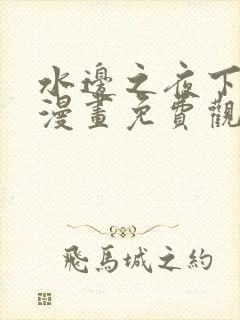 水邊之夜下
漫畫免費觀
飛馬城之約